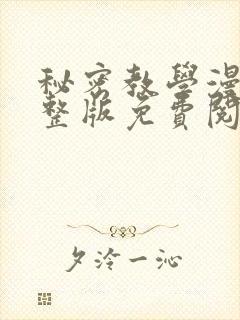 秘密教學漫
整版免費閱
夕泠一沁